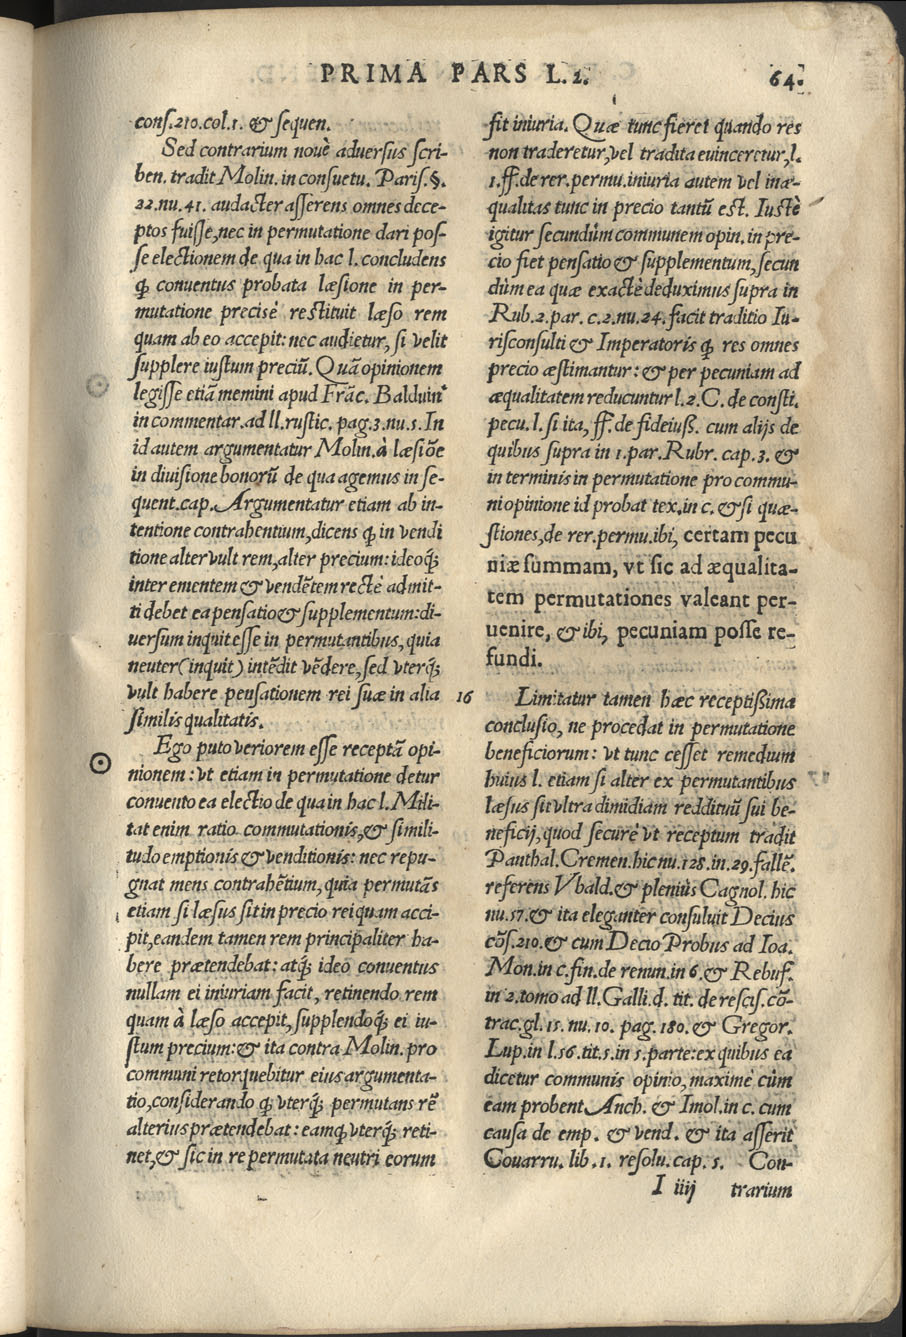 PRIMA PARS L.2.
64.
conſ.210.col.1. & ſequen.
Sed contrarium nouè aduerſus ſcri-
ben. tradit Molin. in conſuetu. Pariſ.§.
22.nu.41. audacter aſſerens omnes dece-
ptos fuiſſe, nec in permutatione dari poſ-
ſe electionem de qua in hac l. concludens
ꝙ conuentus probata læſione in per-
mutatione preciſè reſtituit læſo rem
quam ab eo accepit: nec audietur, ſi velit
ſupplere iuſtum preciũ. Quã opinionem
legiſſe etiã memini apud Frãc. Balduin
in commentar.ad ll.ruſtic. pag.3.nu.5. In
id autem argumentatur Molin.à læſiõe
in diuiſione bonorũ de qua agemus in ſe-
quent.cap. Argumentatur etiam ab in-
tentione contrahentium, dicens ꝙ in vendi
tione alter vult rem, alter precium: ideoq́;
inter ementem & vendẽtem rectè admit-
ti debet ea penſatio & ſupplementum: di-
uerſum inquit eſſe in permutantibus, quia
neuter (inquit) intẽdit vẽdere, ſed vterq́;
vult habere penſationem rei ſuæ in alia
ſimilis qualitatis.
Ego puto veriorem eſſe receptã opi-
nionem: vt etiam in permutatione detur
conuento ea electio de qua in hac l. Mili-
tat enim ratio commutationis, & ſimili-
tudo emptionis & venditionis: nec repu-
gnat mens contrahẽtium, quia permutãs
etiam ſi læſus ſit in precio rei quam acci-
pit, eandem tamen rem principaliter ha-
bere prætendebat: atq́; ideo conuentus
nullam ei iniuriam facit, retinendo rem
quam à læſo accepit, ſupplendoq́; ei iu-
ſtum precium: & ita contra Molin. pro
communi retorquebitur eius argumenta-
tio, conſiderando ꝙ vterq́; permutans rẽ
alterius prætendebat: eamq́; vterq́; reti-
net, & ſic in re permutata neutri eorum
fit iniuria. Quæ tunc fieret quando res
non traderetur, vel tradita euinceretur, l.
1.ff.de rer.permu.iniuria autem vel inæ-
qualitas tunc in precio tantũ eſt. Iuſtè
igitur ſecundùm communem opin. in pre-
cio fiet penſatio & ſupplementum, ſecun
dùm ea quæ exactè deduximus ſupra in
Rub.2.par. c.2.nu.24. facit traditio Iu-
riſconſulti & Imperatoris ꝙ res omnes
precio æſtimantur: & per pecuniam ad
æqualitatem reducuntur l.2.C. de conſti.
pecu. l. ſi ita, ff. de fideiuſſ. cum alijs de
quibus ſupra in 1.par.Rubr. cap.3. &
in terminis in permutatione pro commu-
ni opinione id probat tex.in c. & ſi quæ-
ſtiones, de rer.permu.ibi, certam pecu
niæ ſummam, vt ſic ad æqualita-
tem permutationes valeant per-
uenire, & ibi, pecuniam poſſe re-
fundi.
16 Limitatur tamen hæc receptiſsima
concluſio, ne procedat in permutatione
beneficiorum: vt tunc ceſſet remedium
huius l. etiam ſi alter ex permutantibus
læſus ſit vltra dimidiam reddituũ ſui be-
neficij, quod ſecurè vt receptum tradit
Panthal.Cremen.hic nu.128.in.29.fallẽ.
referens Vbald.& pleniùs Cagnol. hic
nu.57.& ita eleganter conſuluit Decius
cõſ.210.& cum Decio Probus ad Ioa.
Mon.in c.fin.de renun.in 6.& Rebuf.
in 2.tomo ad ll.Galli.d. tit. de reſciſ.cõ-
trac.gl.15. nu.10. pag.180. & Gregor.
Lup.in l.56.tit.5.in 5.parte: ex quibus ea
dicetur communis opinio, maximè cùm
eam probent Anch. & Imol.in c. cum
cauſa de emp. & vend. & ita aſſerit
Couarru. lib.1. reſolu.cap.5. Con-
I iiij trarium